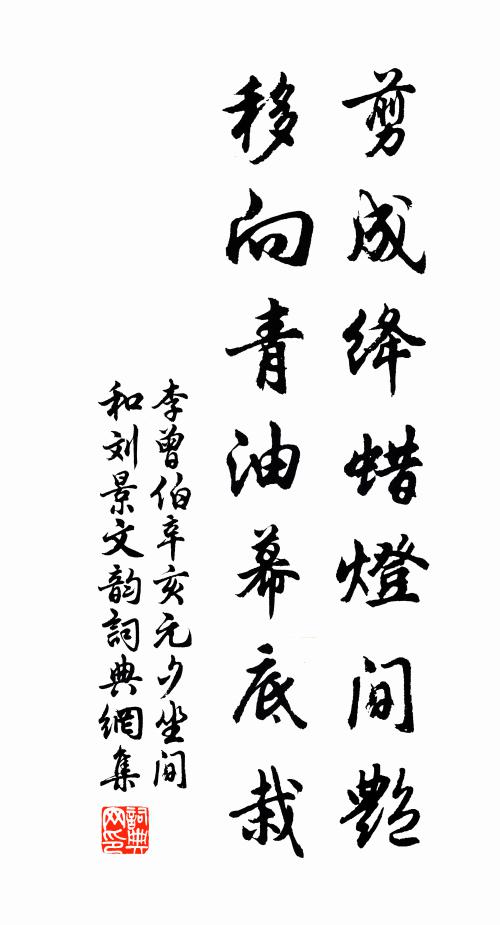 剪成绛蜡燈间艷
移向青油幕底栽
李曾伯辛亥元夕坐间
和刘景文韵詞典網集
詞典网印